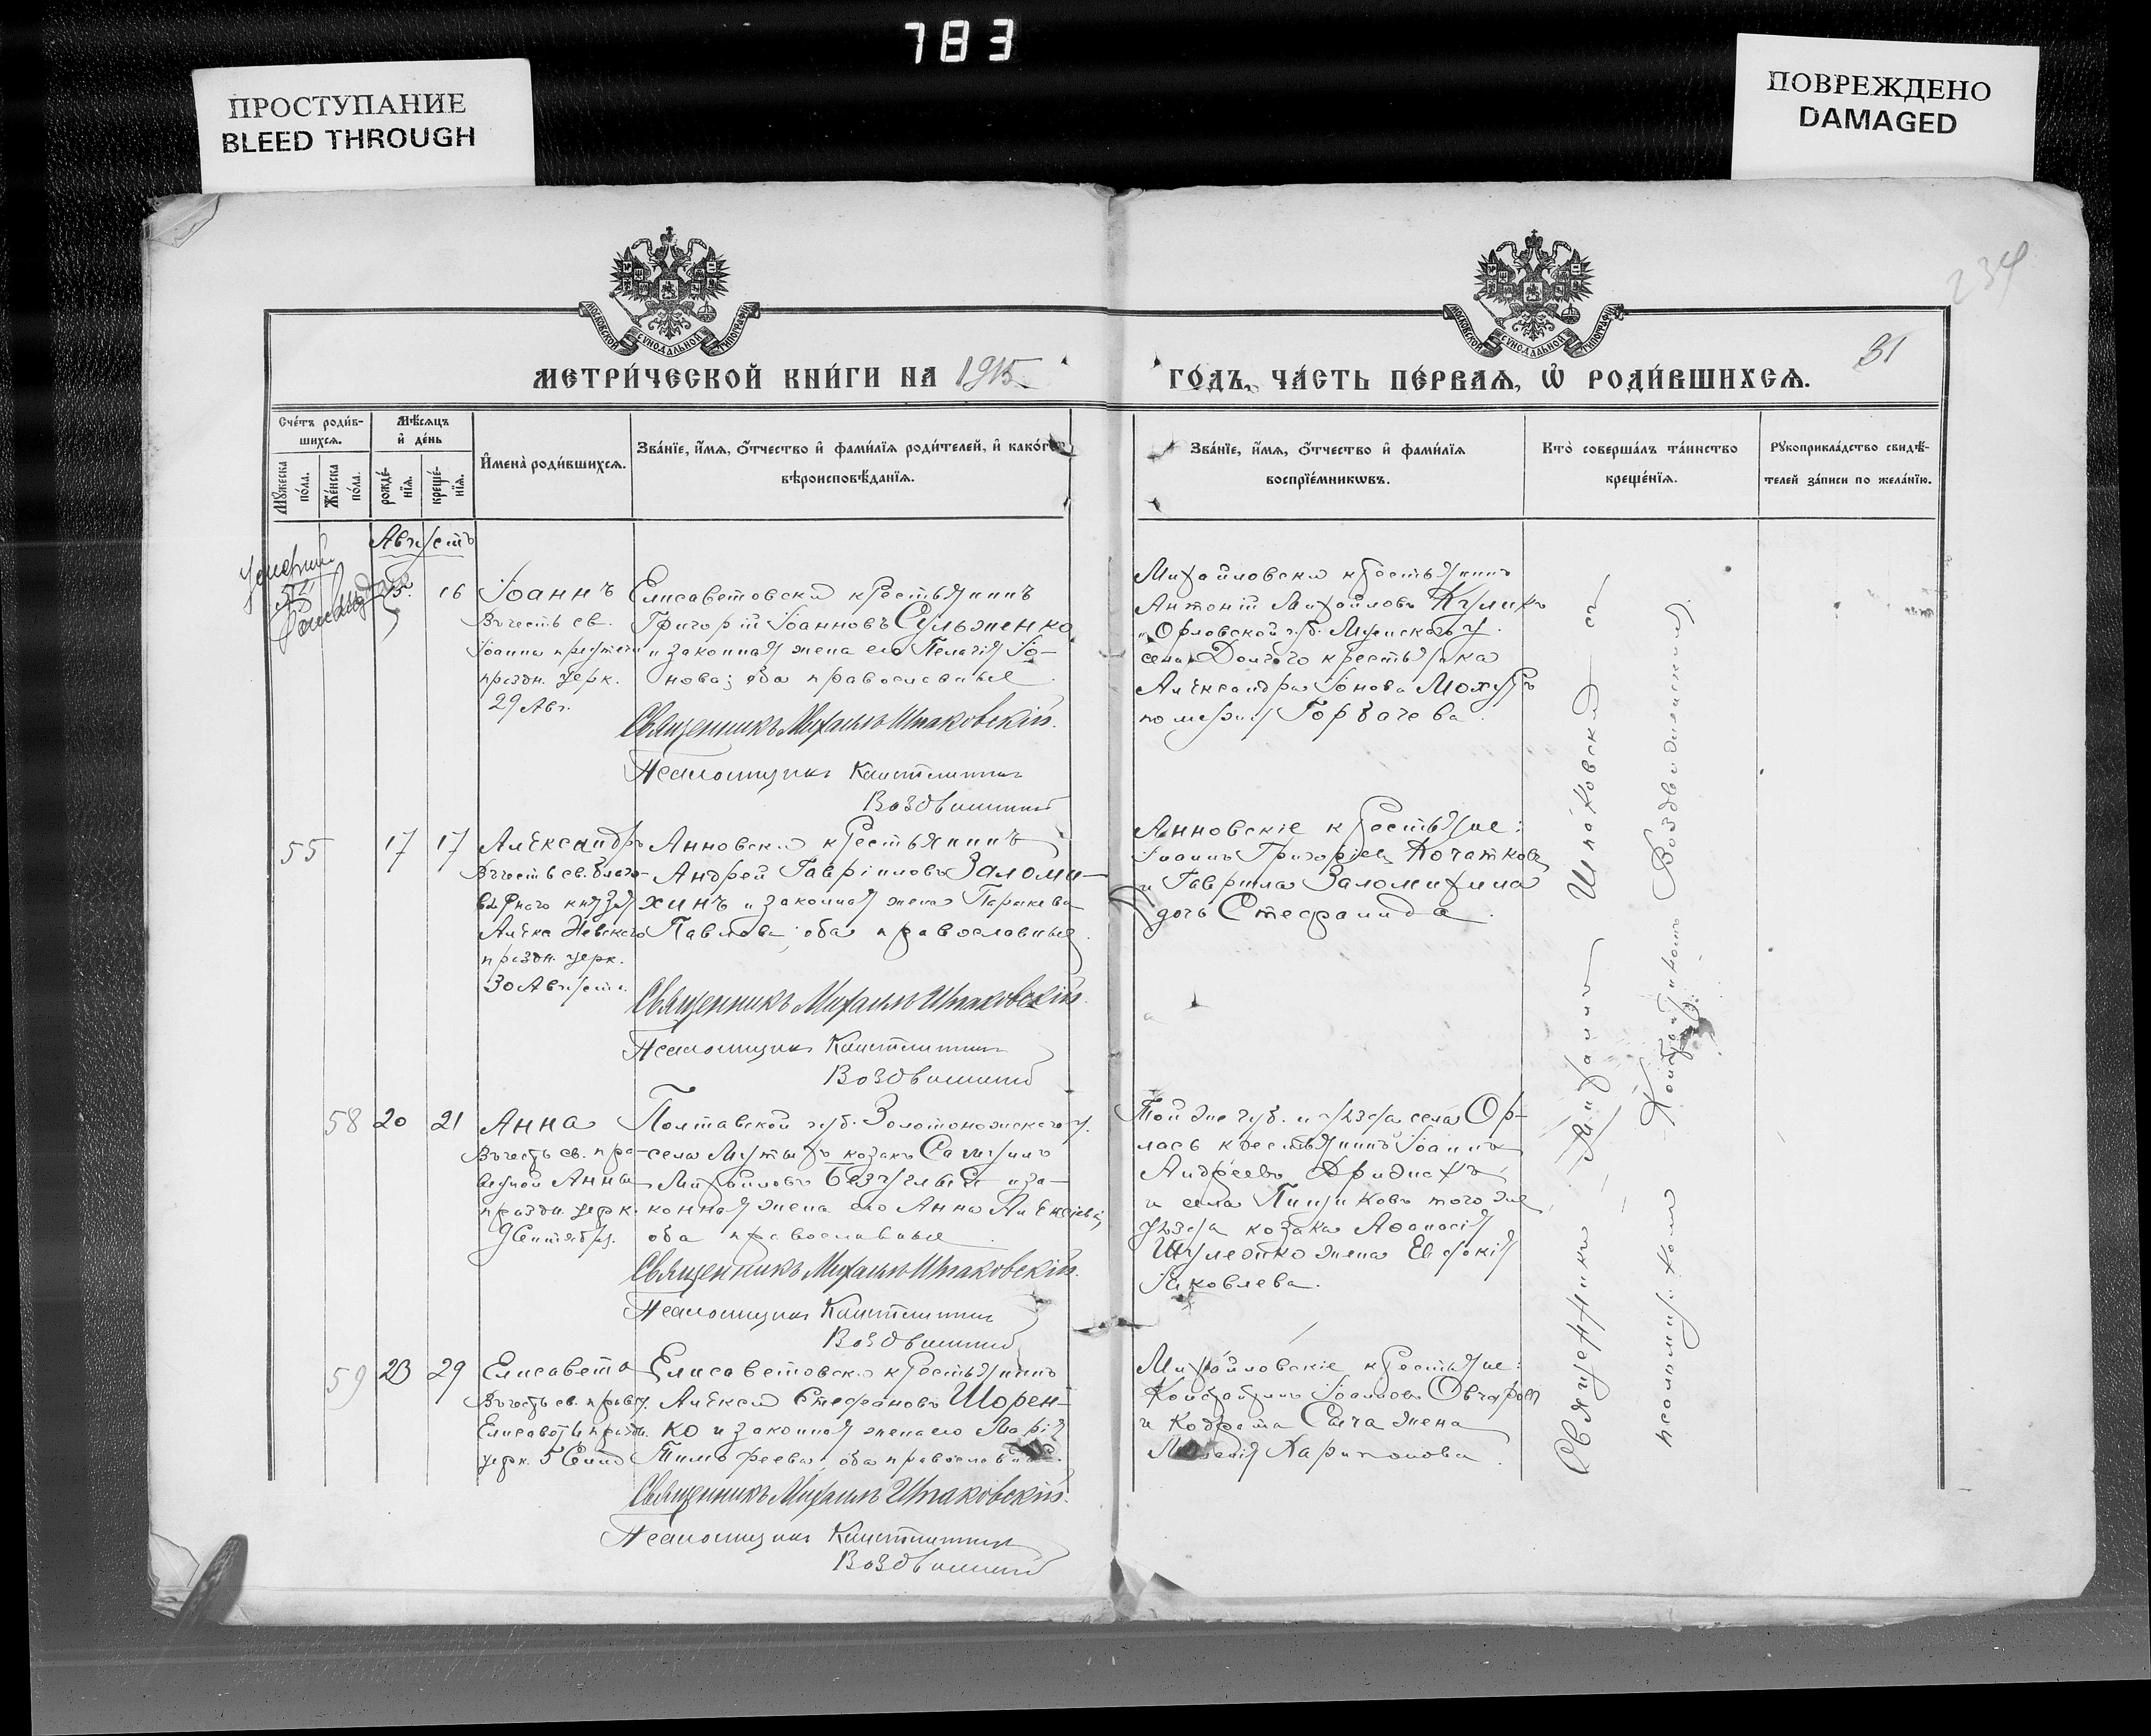 783
ПРОСТУПАНИЕ
BLEED THROUGH
ПОВРЕЖДЕНО
DAMAGED
234
31
МОСКОВСКОЙ СѴНОДАЛЬНОЙ ТИПОГРАФІИ
МОСКОВСКОЙ СѴНОДАЛЬНОЙ ТИПОГРАФІИ
МЕТРИ́ЧЕСКОЙ КНИ́ГИ НА 1915 ГО́ДЪ, ЧА́СТЬ ПЕ́РВАѦ, Ѽ РОДИ́ВШИХСѦ.
Сче́тъ роди́в-
шихсѧ.
Мꙋ́жеска
по́ла.
Же́нска
по́ла.
Мѣ́сѧцъ
и҆ де́нь
рожде́-
нїѧ.
креще́-
нїѧ.
И҆мена̀ роди́вшихсѧ.
Зва́нїе, и҆́мѧ, ѻ҆́тчество и҆ фами́лїѧ роди́телей, и҆ како́гѡ
вѣроисповѣ́данїѧ.
Зва́нїе, и҆́мѧ, ѻ҆́тчество и҆ фами́лїѧ
воспрїе́мникѡвъ.
Кто̀ соверша́лъ та́инство
креще́нїѧ.
Рꙋкоприкла́дство свидѣ́-
телей за́писи по жела́нїю.
Августъ
54
15
16
Іоаннъ
Въ честь св.
Іоанна предтечи
праздн. церк.
29 Авг.
Елисаветовскій крестьянинъ
Григорій Іоанновъ Сульженко
и законная жена его Пелагія Іо-
нова; оба православные
Священникъ Михаилъ Шпаковскій.
Псаломщикъ Константинъ
Воздвиженскій
Михайловскій крестьянинъ
Антоній Михайловъ Куликъ
и Орловской губ. Мценскаго у.
села Долгого крестьянка
Александра Іонова
по мужу Горбачева
55
17
17
Александръ
Въ честь св. благо-
вѣрнаго князя
Алекс. Невскаго
праздн. церк.
30 Августа
Анновскій крестьянинъ
Андрей Гавріиловъ Заломи-
хинъ и законная жена Параскева
Павлова; оба православные
Священникъ Михаилъ Шпаковскій.
Псаломщикъ Константинъ
Воздвиженскій
Анновскіе крестьяне:
Іоаннъ Григорьевъ
и Гавріила Заломихина
дочь Стефанида.
58
20
21
Анна
Въ честь св. пра-
ведной Анны
праздн. церк.
9 Сентября.
Полтавской губ. Золотоношскаго у.
села козакъ
Михайловъ и за-
конная жена его Анна Алексѣева;
оба православные
Священникъ Михаилъ Шпаковскій.
Псаломщикъ Константинъ
Воздвиженскій
Той же губ. и уѣзда села
крестьянинъ Іоаннъ
Андреевъ
и села того же
уѣзда козака Аѳанасія
жена Евдокія
Яковлева.
59
23
29
Елисавета
Въ честь св. правед.
Елисаветы праздн.
церк. 5 Сент
Елисаветовскій крестьянинъ
Алексѣй Стефановъ Шорен-
ко и законная жена его Марія
Тимофеева; оба православные.
Священникъ Михаилъ Шпаковскій.
Псаломщикъ Константинъ
Воздвиженскій
Михайловскіе крестьяне:
Константинъ Іоанновъ
и Кодрата Сыча жена
Харитонова.
Священникъ Михаилъ Шпаковскій съ
псаломщикомъ Константиномъ Воздвиженскимъ